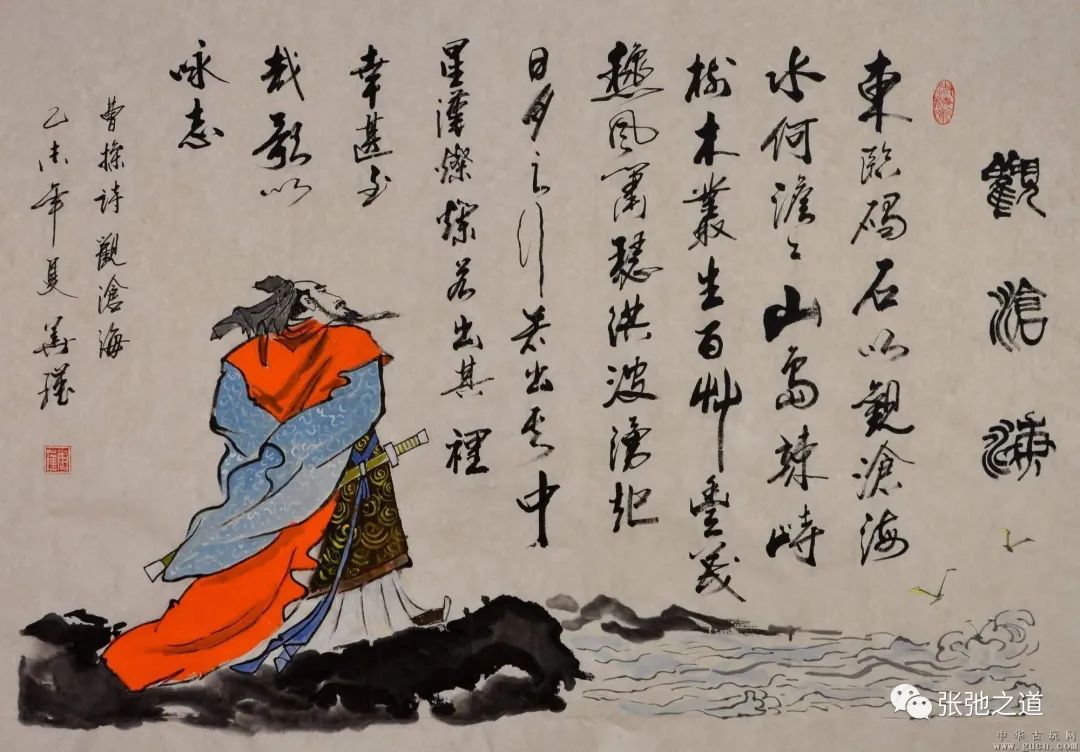 觀滄海
東臨碣石以觀滄海
水何澹〻山島竦峙
樹木叢生百艸豐茂
穐風蕭瑟洪波湧起
日月之行若出其中
星漢燦爛若出其裡
幸甚至
哉歌以
咏志
曹操詩 觀滄海
乙未年夏
张弛之道
中华古玩网
www.gucn.com